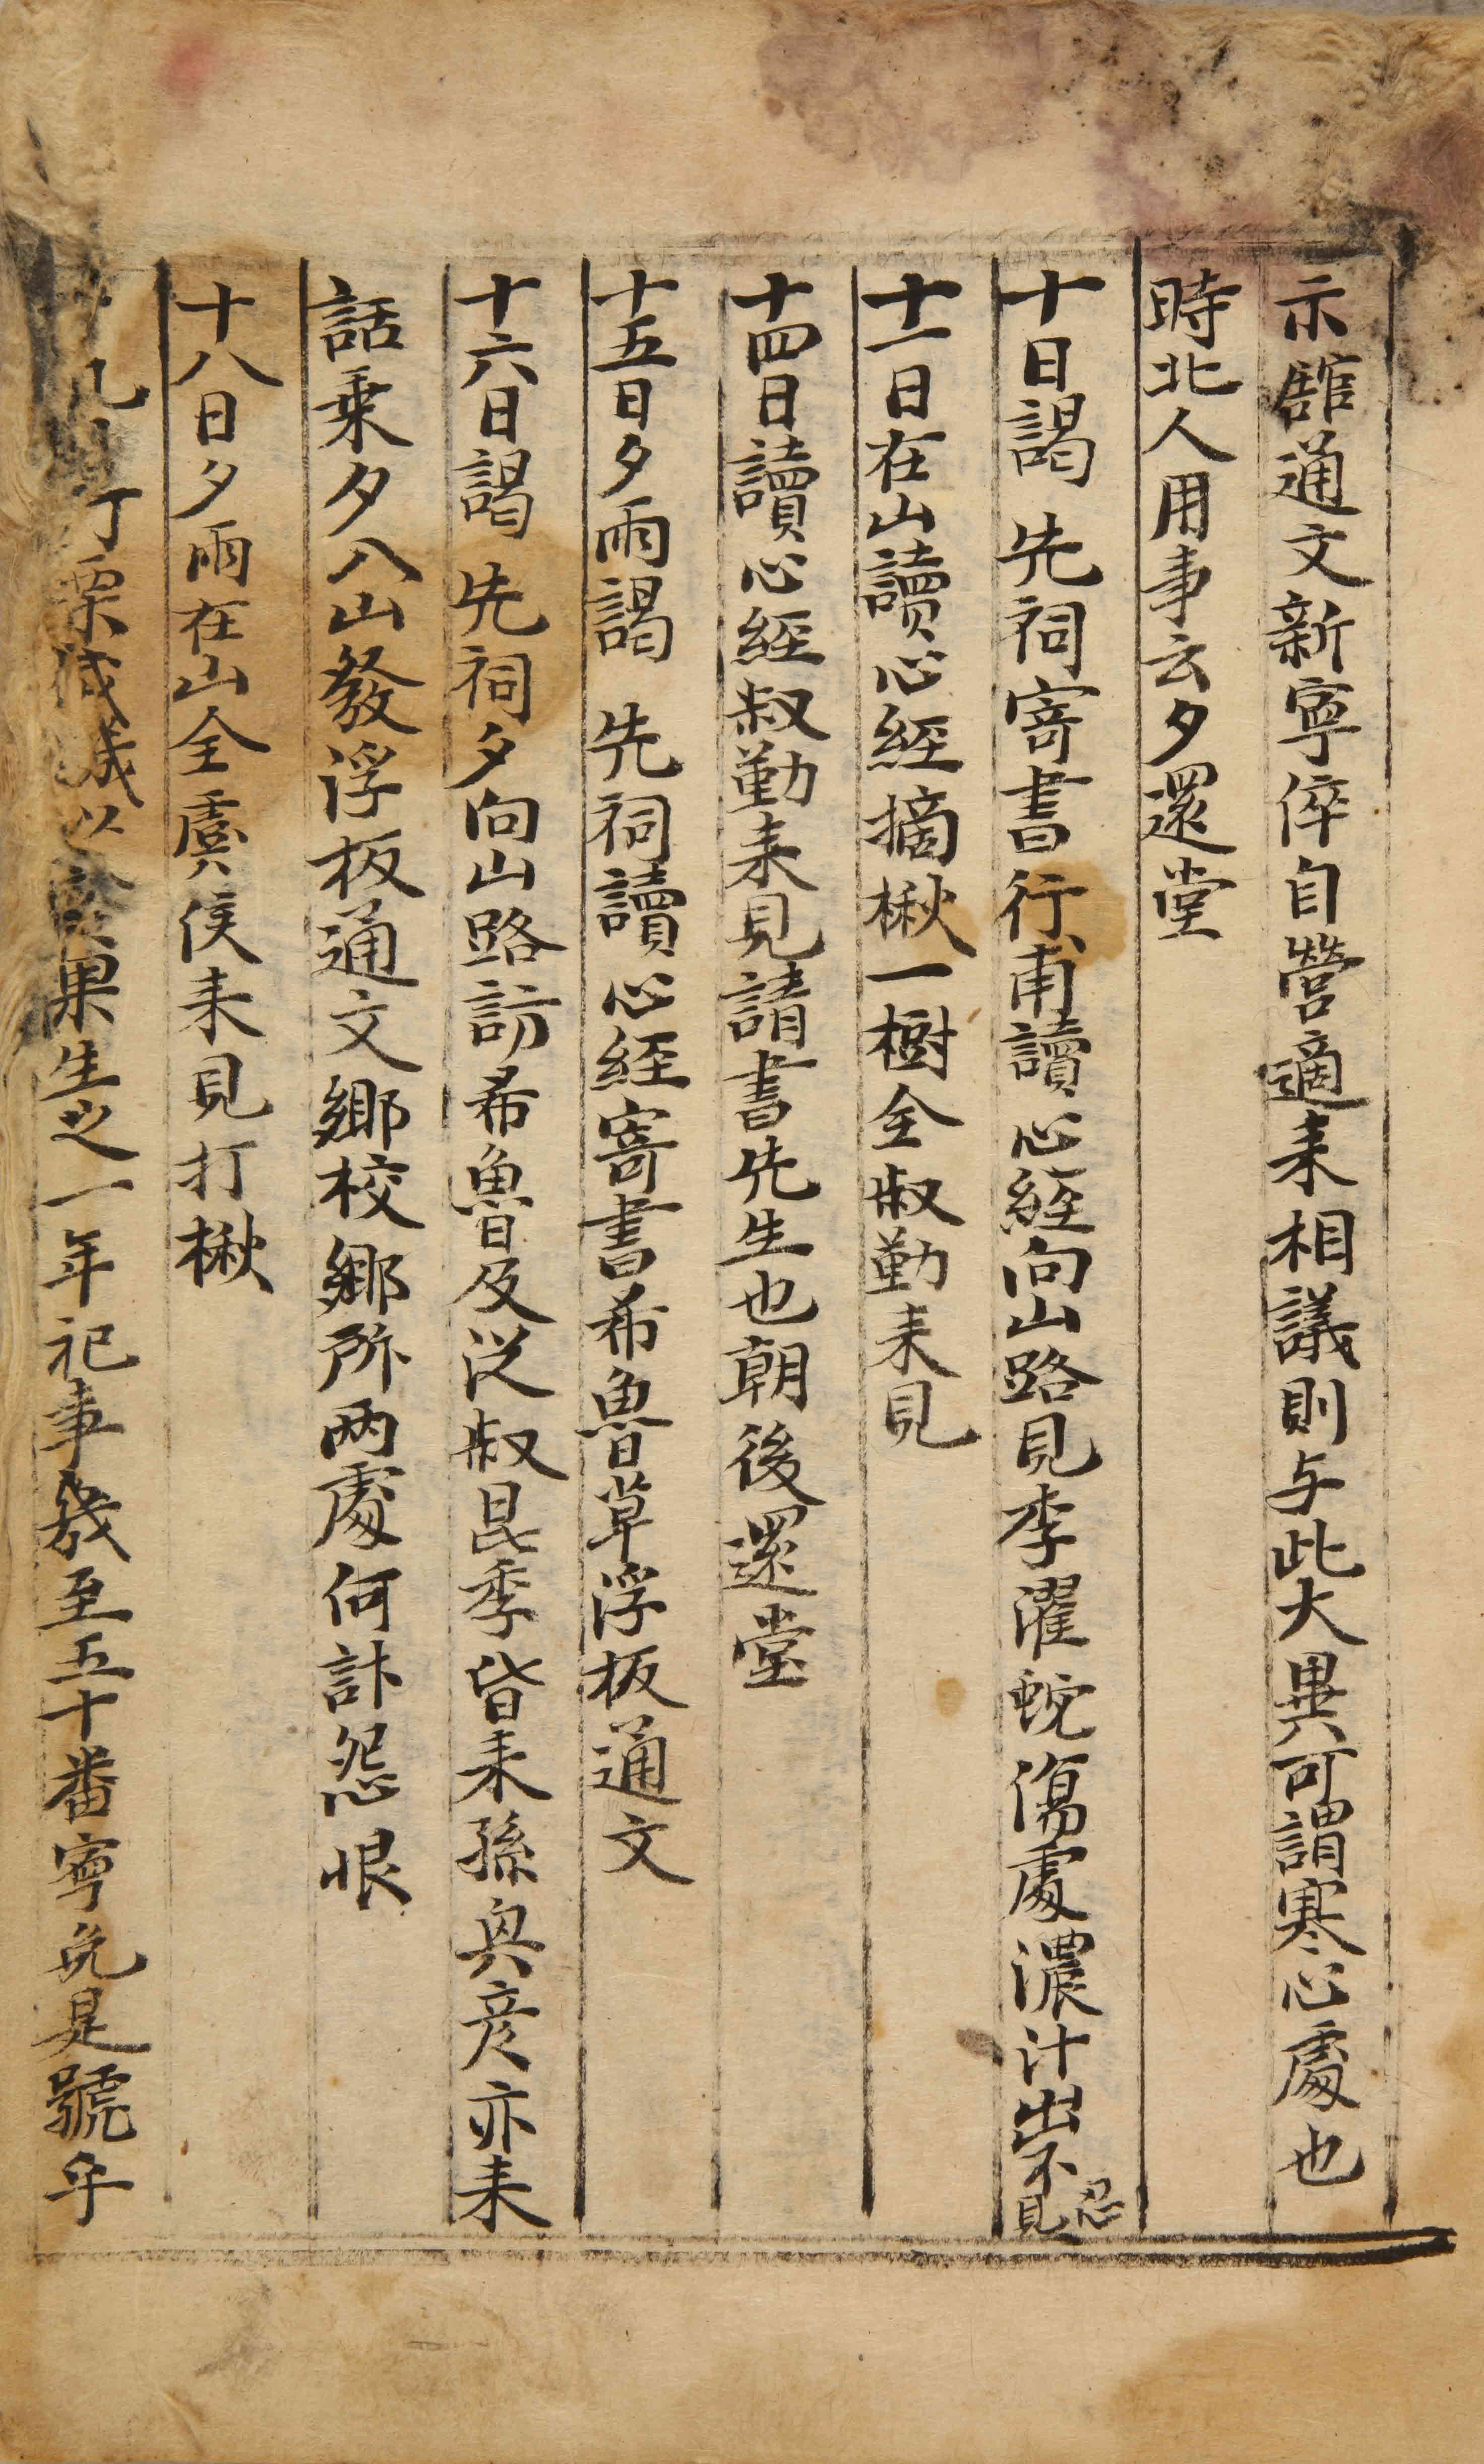 示舘通文新寧倅自營適来相議則与此大異可謂寒心處也
時北人用事云夕還堂
十日謁 先祠寄書行甫讀心經向山路見李濯蛇傷處濃汁出不忍見
十一日在山讀心經摘楸一樹全叔勤来見
十四日讀心經叔勤来見請書先生也朝後還堂
十五日夕雨謁 先祠讀心經寄書希魯草浮板通文
十六日謁 先祠夕向山路訪希魯及従叔昆季皆来孫興彦亦来
話乘夕入山發浮板通文鄉校鄉所兩處何訃怨恨
十八日夕雨在山全虞侯来見打楸
栗 果生之一年祀事幾至五十番寧免是號乎